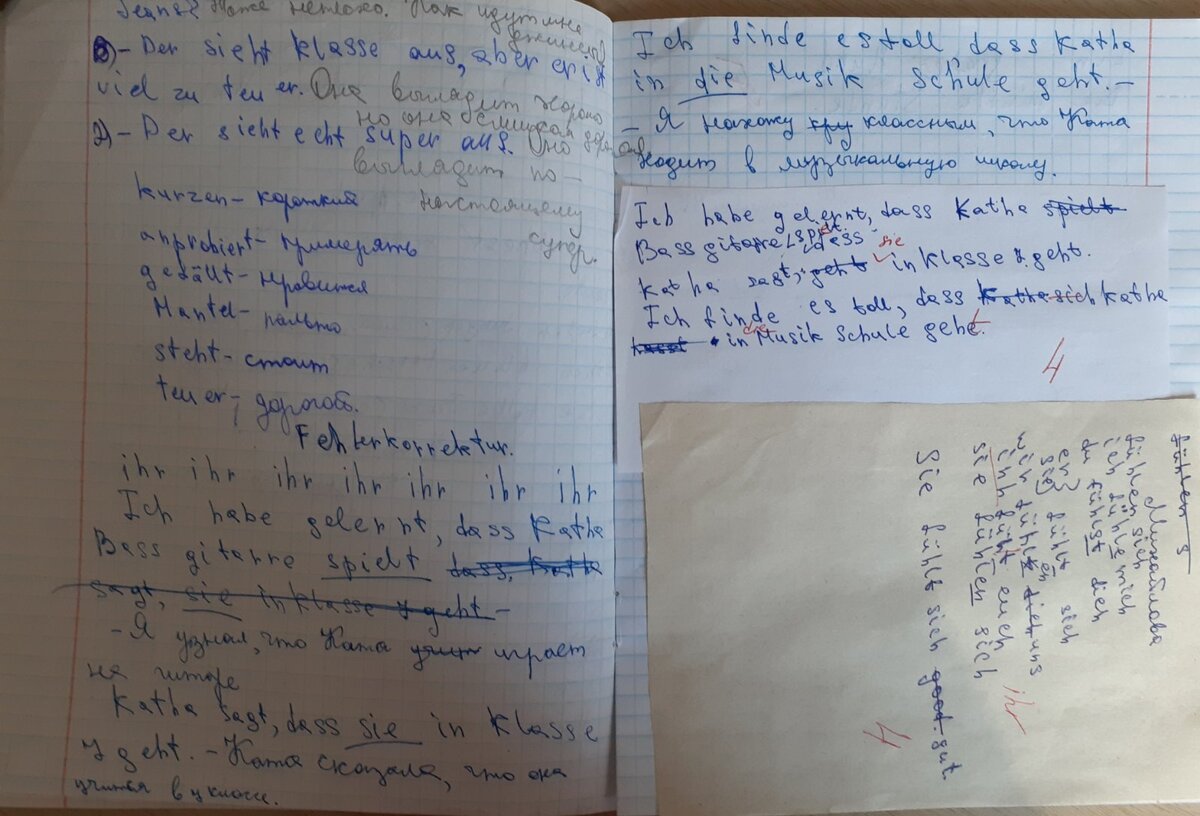 Jeans? Тоже неплохо. Как идут мне
джинсы?
3) - Der sieht klasse aus, aber er ist
viel zu teuer. Она выглядит хорошо
но она слишком
2) - Der sieht echt super aus. Оно
выглядит по-
настоящему
супер.
kurzen - короткий
anprobiert - примерять
gefällt - нравится
Mantel - пальто
steht - стоит
teuer - дорогой.
Fehlerkorrektur.
ihr ihr ihr ihr ihr ihr ihr
Ich habe gelernt, dass Katha
Bass gitarre spielt dass, Katha
sagt, sie in klasse 7 geht -
- Я узнал, что Ката учит играет
на гитаре
Katha sagt, dass sie in Klasse
7 geht. - Ката сказала, что она
учится в 7 классе.
Ich finde es toll, dass Katha
in die Musik Schule geht. -
- Я нахожу классным, что Ката
ходит в музыкальную школу.
Ich habe gelernt, dass Katha spielt
Bass gitarre, spielt.
Katha sagt, dass geht sie in klasse 7 geht.
Ich finde es toll, dass Katha sich katha
in die Musik Schule geht.
4
fühlen s
Михайлова
fühlen sich
ich fühle mich
du fühlst dich
er
sie fühlt sich
wir fühlen dich uns
ihr fühlt euch ihr
sie fühlen sich
Sie fühlt sich goot. gut.
4